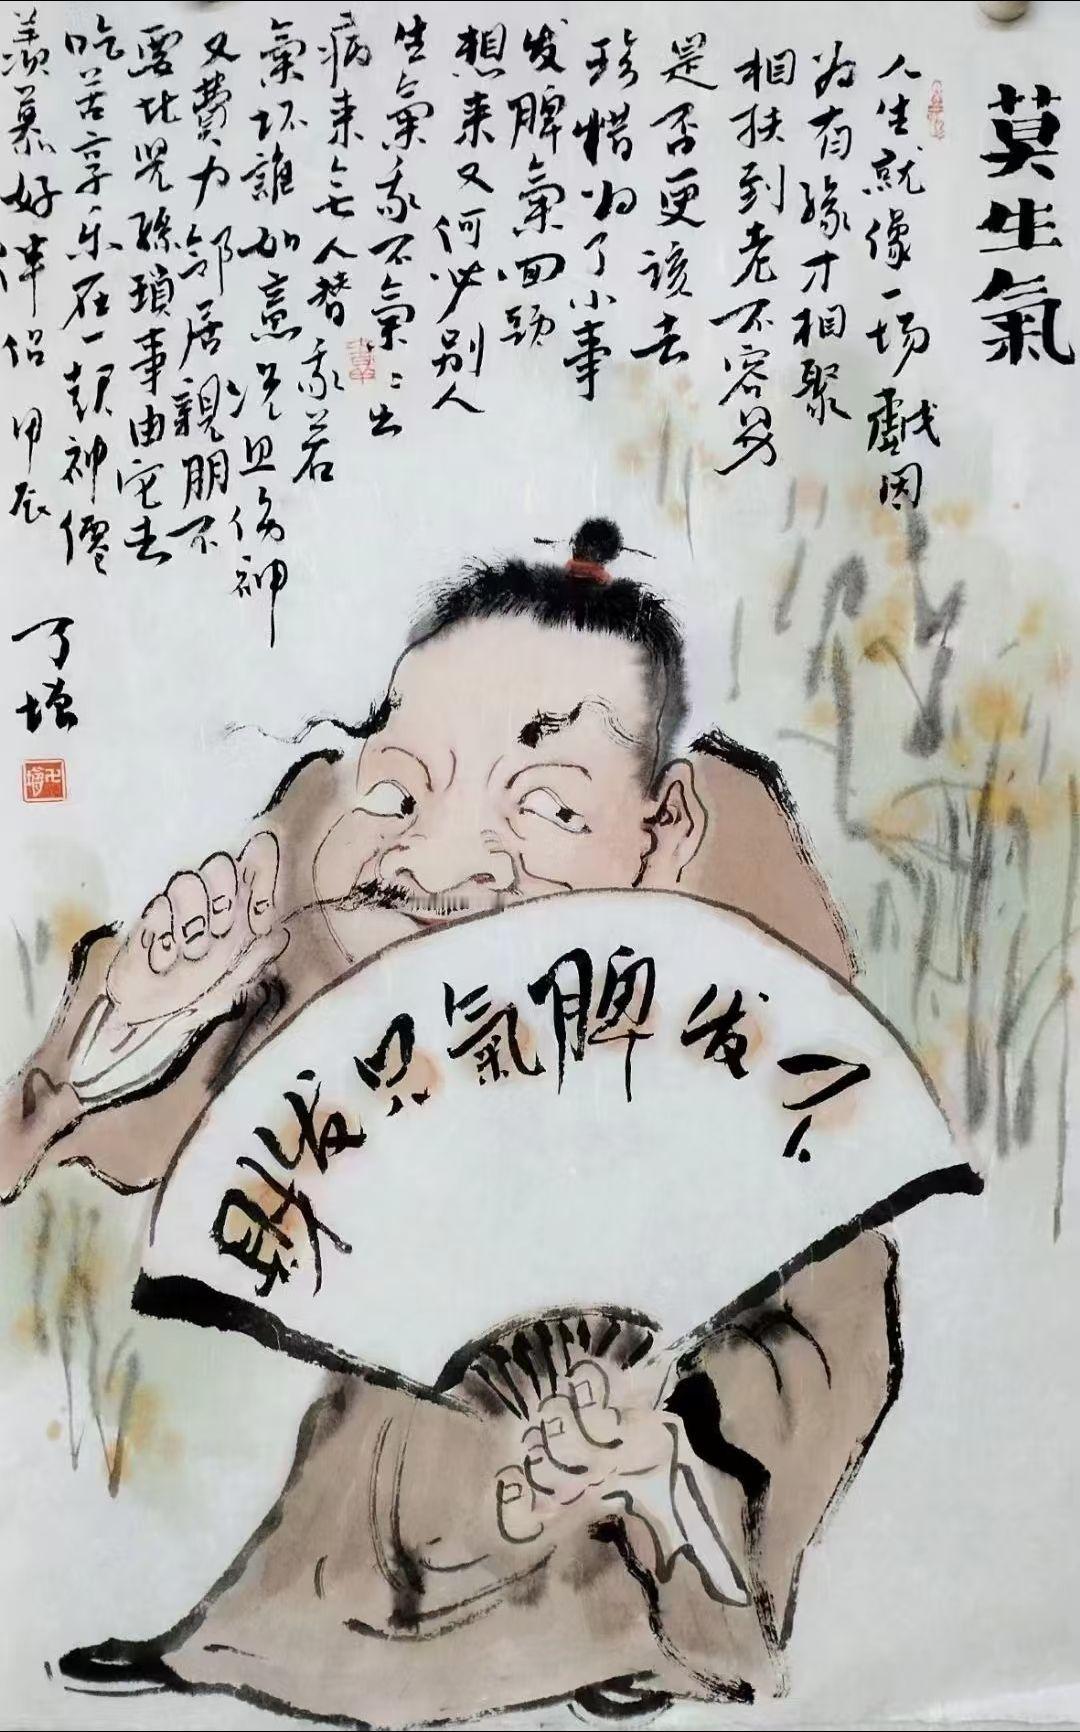 莫生氣
人生就像一场戲因
为有缘才相聚
相扶到老不容易
是否更该去
珍惜为了小事
发脾氣回头
想来又何必别人
生氣我不氣〻出
病来无人替我若
氣坏誰如意况且伤神
又費力邻居親朋不
要比兒孫瑣事由它去
吃苦享乐在一起神僊
羡慕好伴侣 甲辰
了增
不发脾氣只发財